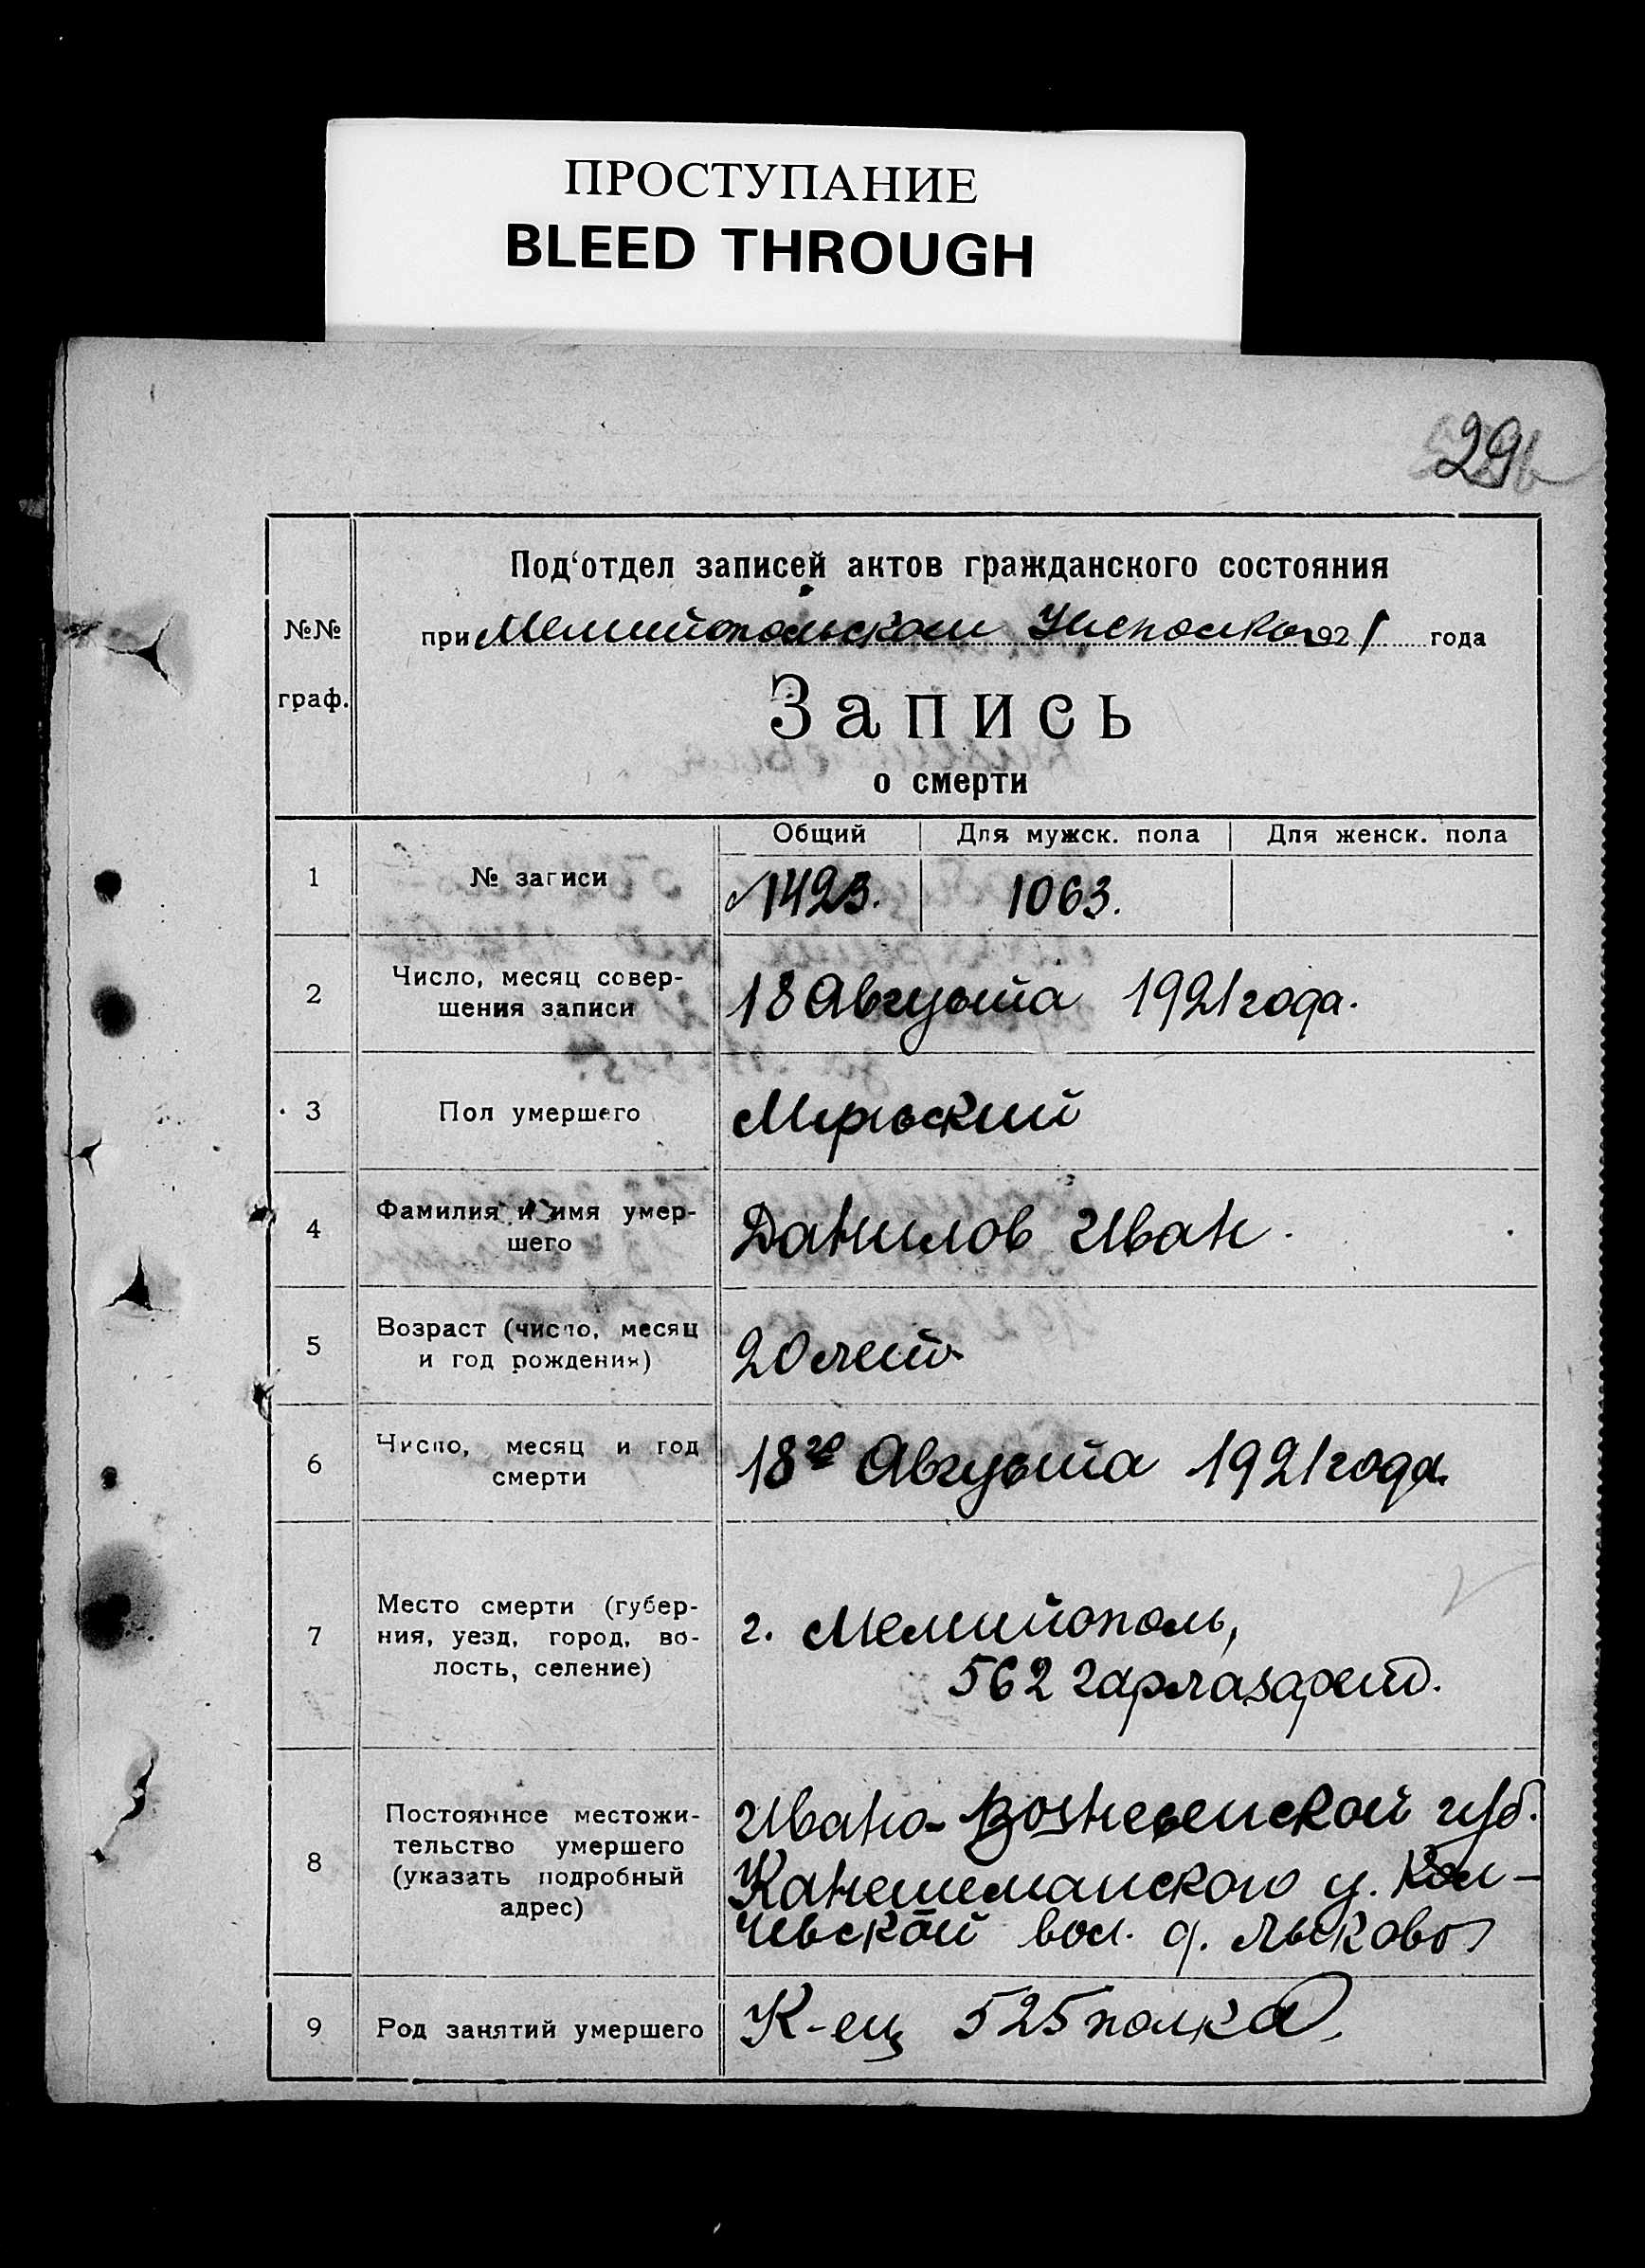 ПРОСТУПАНИЕ
BLEED THROUGH
29
Под‘отдел записей актов гражданского состояния
№№
граф.
при Мелитопольском Уисполком 1921 года
Запись
о смерти
Общий Для мужск. пола Для женск. пола
1 № записи 1423. 1063.
2 Число, месяц совер-
шения записи
18 Августа 1921 года.
3 Пол умершего Мужский
4 Фамилия и имя умер-
шего
Данилов Иван.
5 Возраст (число, месяц
и год рождения)
20 лет
6 Число, месяц и год
смерти
18го Августа 1921 года.
7 Место смерти (губер-
ния, уезд, город, во-
лость, селение)
г. Мелитополь,
562 гарлазарет.
8 Постоянное местожи-
тельство умершего
(указать подробный
адрес)
Ивано-Вознесенской губ.
у.
чевской вол. д. Лыково
9 Род занятий умершего К-ец 525 полка,